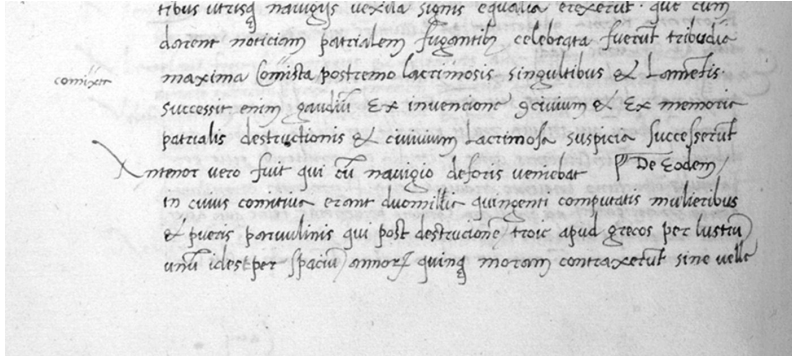 tibus utrisq navigijs vexila signis equalia erexerut. que cum
darent noticiam patrialem fugantibz celebrata fuerut tribudia
maxima Comista postremo lacrimosis singultibus & Lametis.
comixet
successit enim gaudiu Ex invencione 9civium & Ex memoria
patrialis destructionis & civivium Lacrimosa suspicia successerut
Antenor vero fuit qui cu navigio deforis veniebat De Eodem
in cuius comitiva erant duomillia quingenti computatis mulieribus
& pueris parvulinis qui post destrucione troie apud grecos per lustru
unu idest per spaciu annorꝝ quinq moram contraxerut sine velle